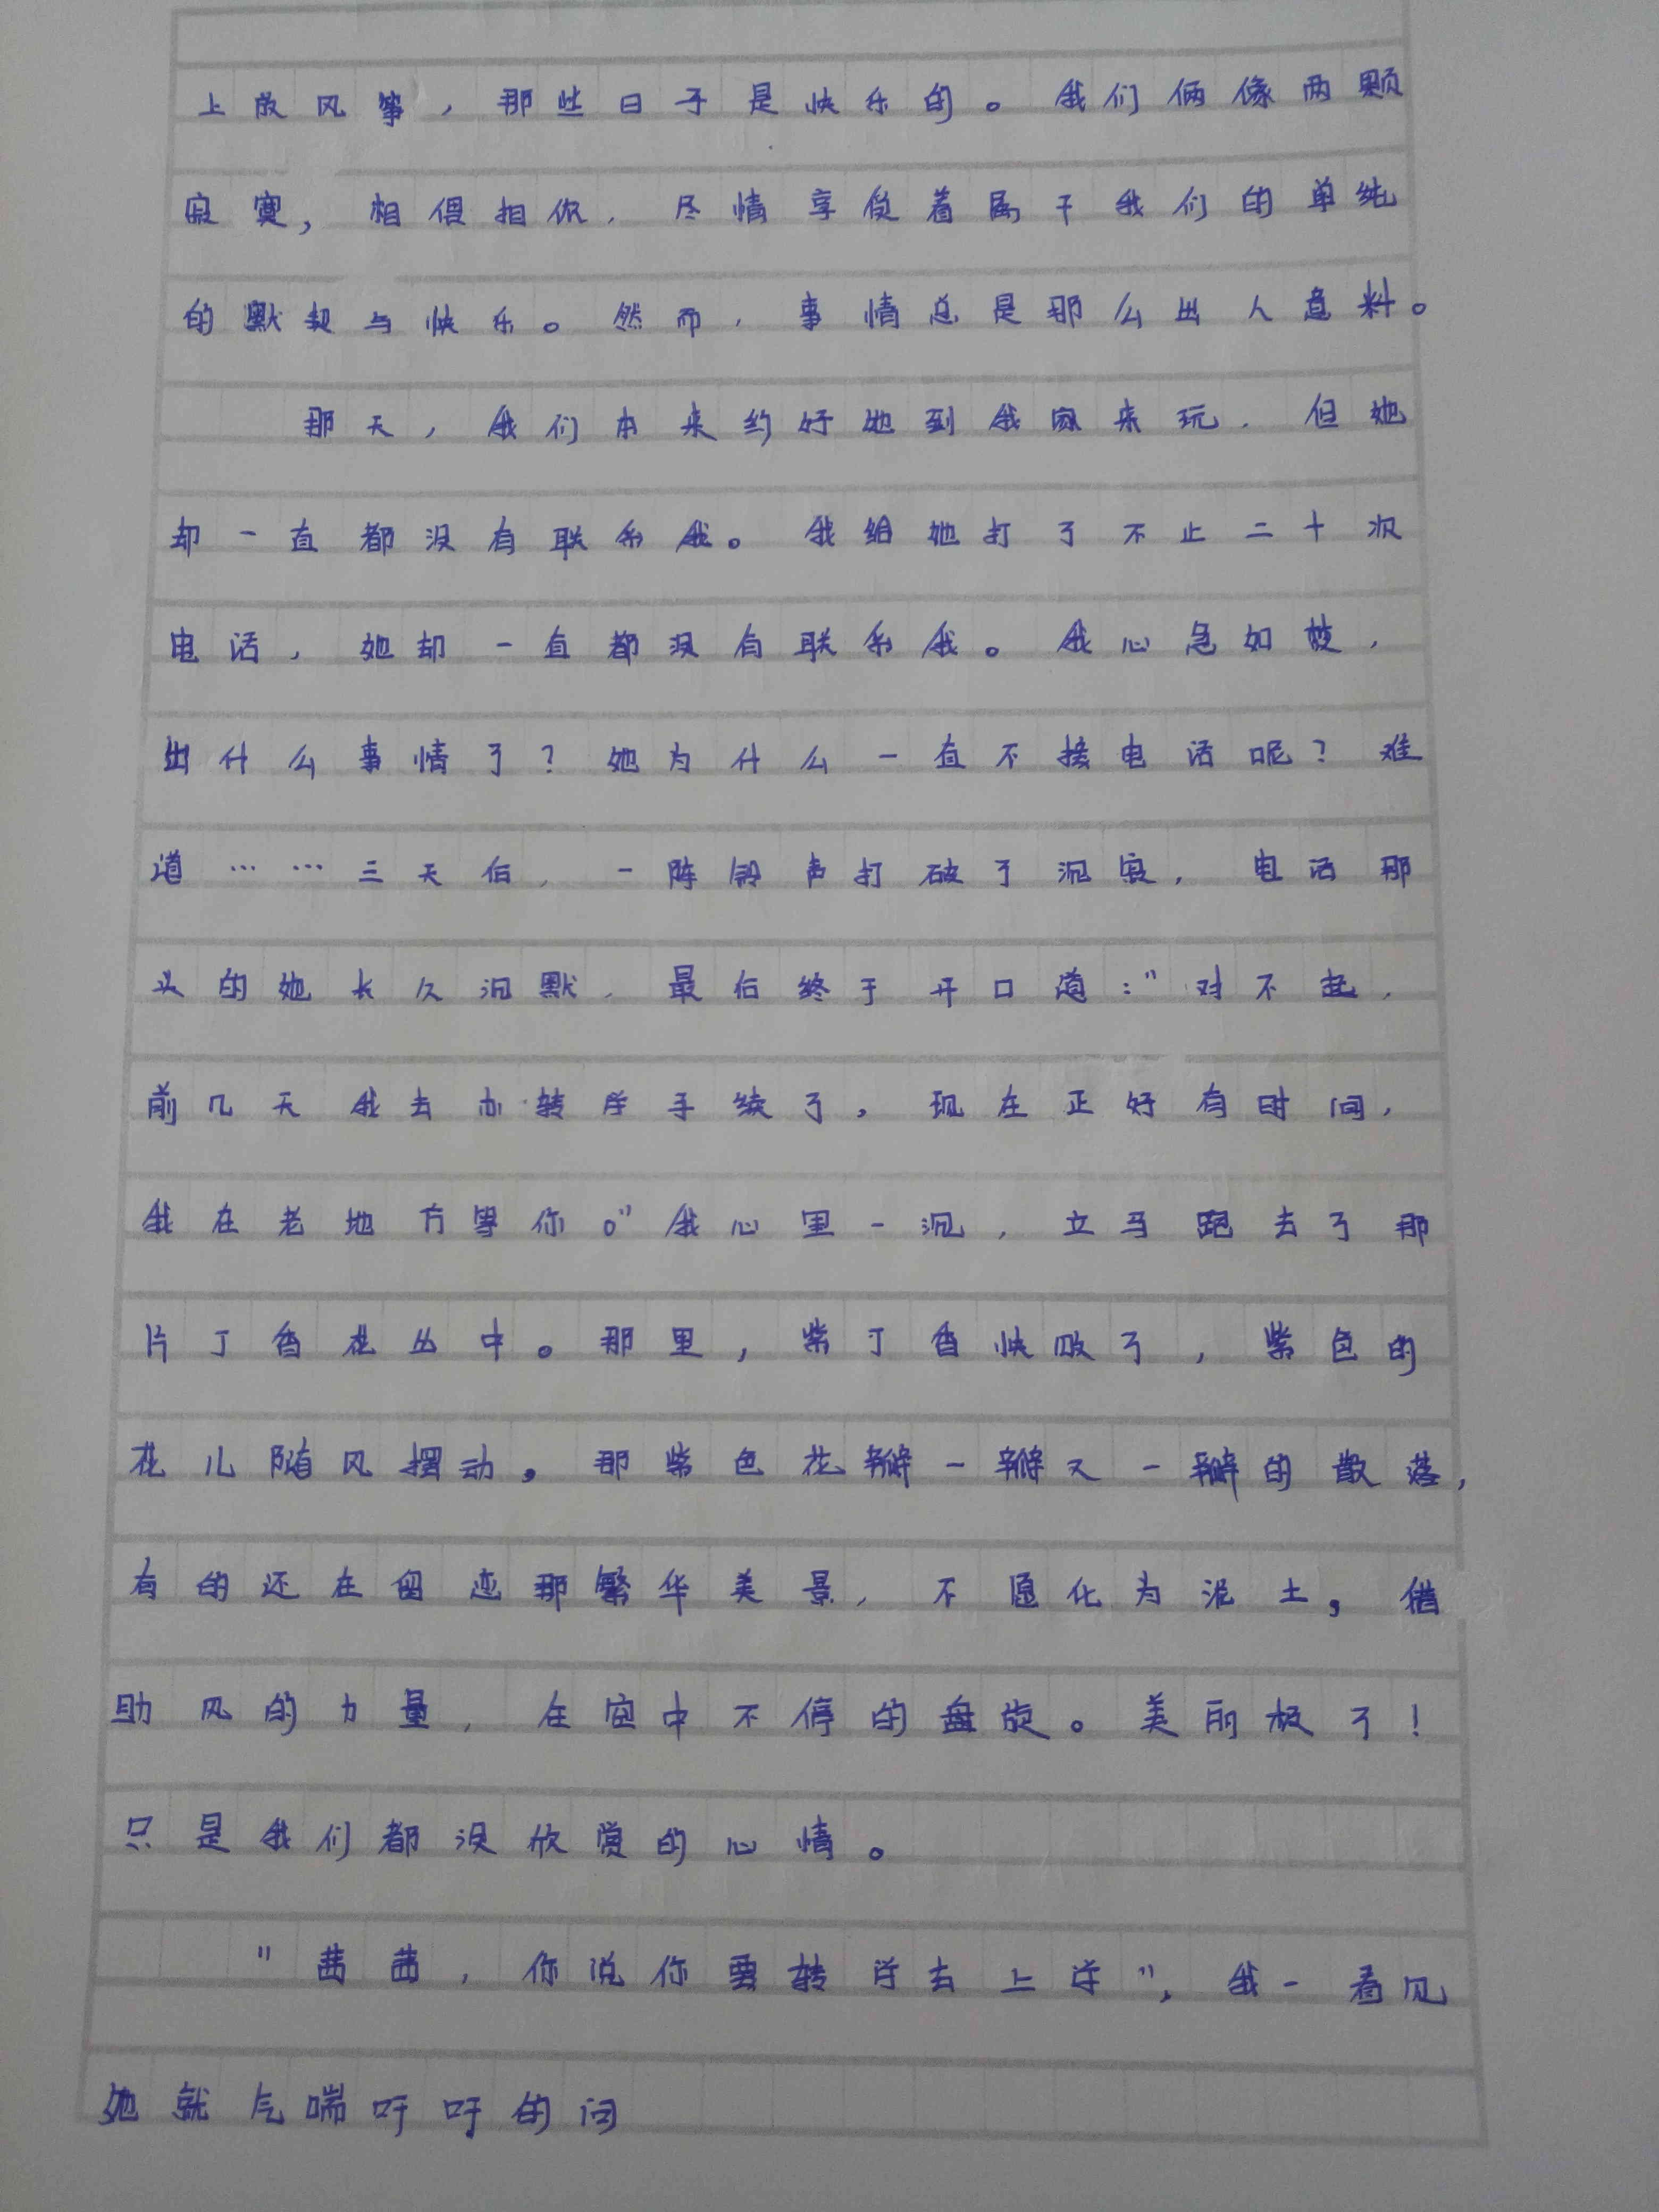 上放风筝，那些日子是快乐的。我们俩像两颗
寂寞，相偎相依，尽情享受着属于我们的单纯
的默契与快乐。然而，事情总是那么出人意料。
那天，我们本来约好她到我家来玩，但她
却一直都没有联系我。我给她打了不止二十次
电话，她却一直都没有联系我。我心急如焚，
出什么事情了？她为什么一直不接电话呢？难
道……三天后，一阵铃声打破了沉寂，电话那
头的她长久沉默，最后终于开口道："对不起，
前几天我去办转学手续了，现在正好有时间，
我在老地方等你。"我心里一沉，立马跑去了那
片丁香花丛中。那里，紫丁香快败了，紫色的
花儿随风摆动。那紫色花瓣一瓣又一瓣的散落，
有的还在留恋那繁华美景，不愿化为泥土，借
助风的力量，在空中不停的盘旋。美丽极了！
只是我们都没欣赏的心情。
"茜茜，你说你要转学去上学"，我一看见
她就气喘吁吁的问